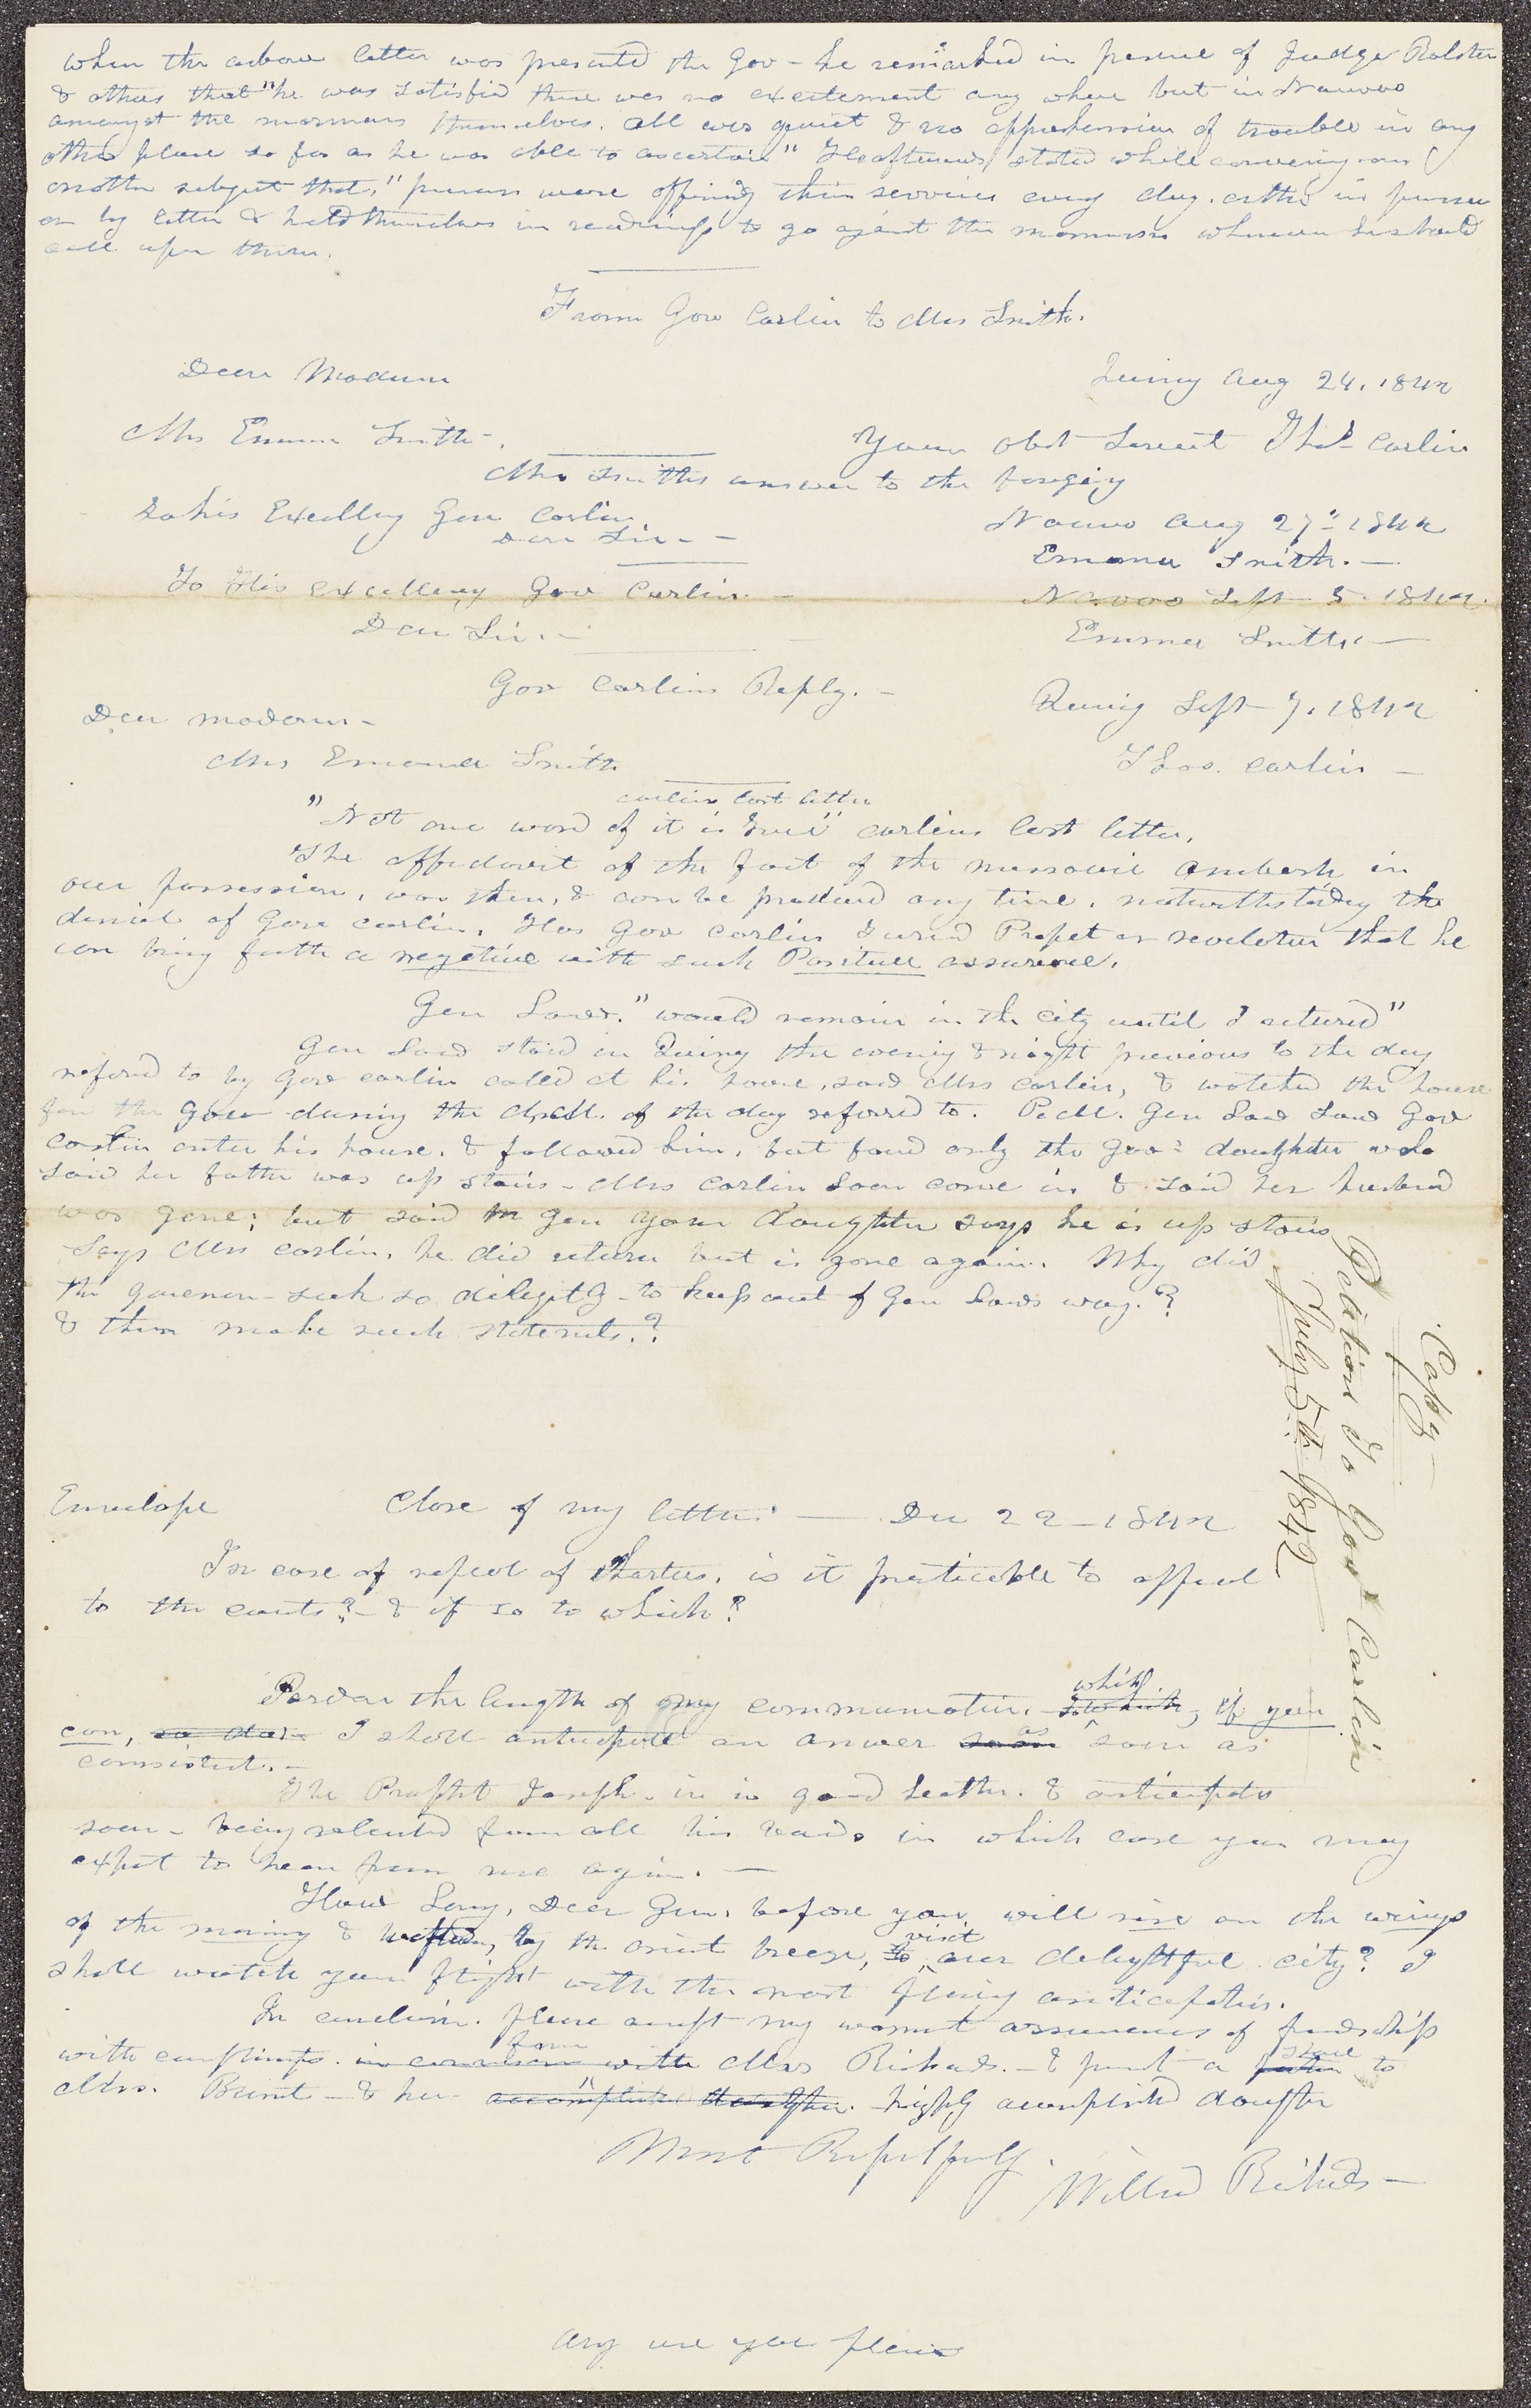 When the above letter was presented the Gov - he remarked in presence of Judge Ralston
& others that "he was satisfied there was no excitement any where but in Nauvoo
amongst the mormons themselves. all was quiet & no apprehension of trouble in any
other place so far as he was able to ascertain" He afterwards stated while conversing on
another subject that, "persons were offering their services every day. either in person
or by letter & held themselves in readiness to go against the mormons whenever he should
call upon them.
From Gov Carlin to Mrs Smith.
Dear Madam
Quincy Aug 24. 1842
Mrs Emma Smith -.
Your obdt Servent Thos Carlin
Mrs Smiths answer to the foregoing
To his Excellency Gov Carlin
Dear Sir - -
Nauvoo Aug 27th 1842
Emma Smith. -
To His Excellency Gov Carlin. -
Nauvoo Sept 5. 1842.
Dear Sir. -
Emma Smith -
Gov Carlins Reply. -
Dear madam -
Quincy Sept 7. 1842
Mrs Emma Smith
Thos. Carlin -
carlins last letter
"Not one word of it is true" carlins last letter.
The affidavit of the fact of the missouri ambush in
our possession, was then, & can be produced any time, notwithstanding the
denial of Gov carlin. Has Gov Carlin turned Prophet or revelator that he
can bring forth a negative with such Positive assurance.
Gen Law. "would remain in the city until I returned"
Gen Law staid in Quincy the evening & night previous to the day
referred to by Gov carlin called at his house, saw Mrs Carlin, & watched the house
for the Gov during the A.M. of the day referred to. P.M. Gen Law saw Gov
Carlin enter his house, & followed him, but found only the Govs daughter who
said her father was up stairs - Mrs Carlin soon came in & said her husband
was gone; but said Gen your daughter says he is up stairs
Says Mrs Carlin, he did return but is gone again. Why did
the governor seek so diligently - to keep out of Gen Laws way.?
& then make such statements.?
Copy
Petition To Gov Carlin
July 5th 1842
Envelope Close of my letter - Dec 22 - 1842
In case of repeal of Charters, is it practicable to appeal
to the courts? - & if so to which?
which
Pardon the length of my communication, if you
can, so do. I shall anticipate an answer soon as soon as
consistent. -
The Prophet Joseph. is in good health. & anticipates
soon - being released from all his bands in which case you may
expect to hear from me again. -
How Long, Dear Gen, before you will rise on the wings
of the morning & wafted, by the orient breeze, to visit our delightful city? I
shall watch your flight with the most anticipation.
In conclusion. please accept my warmest assurances of friendship
with compliments. in connexion with from Mrs Richards. - & present a share to
Mrs. Bennet - & her accomplished daughter. highly accomplished daughter
Most Respectfully.
Willard Richards -
Any use you please